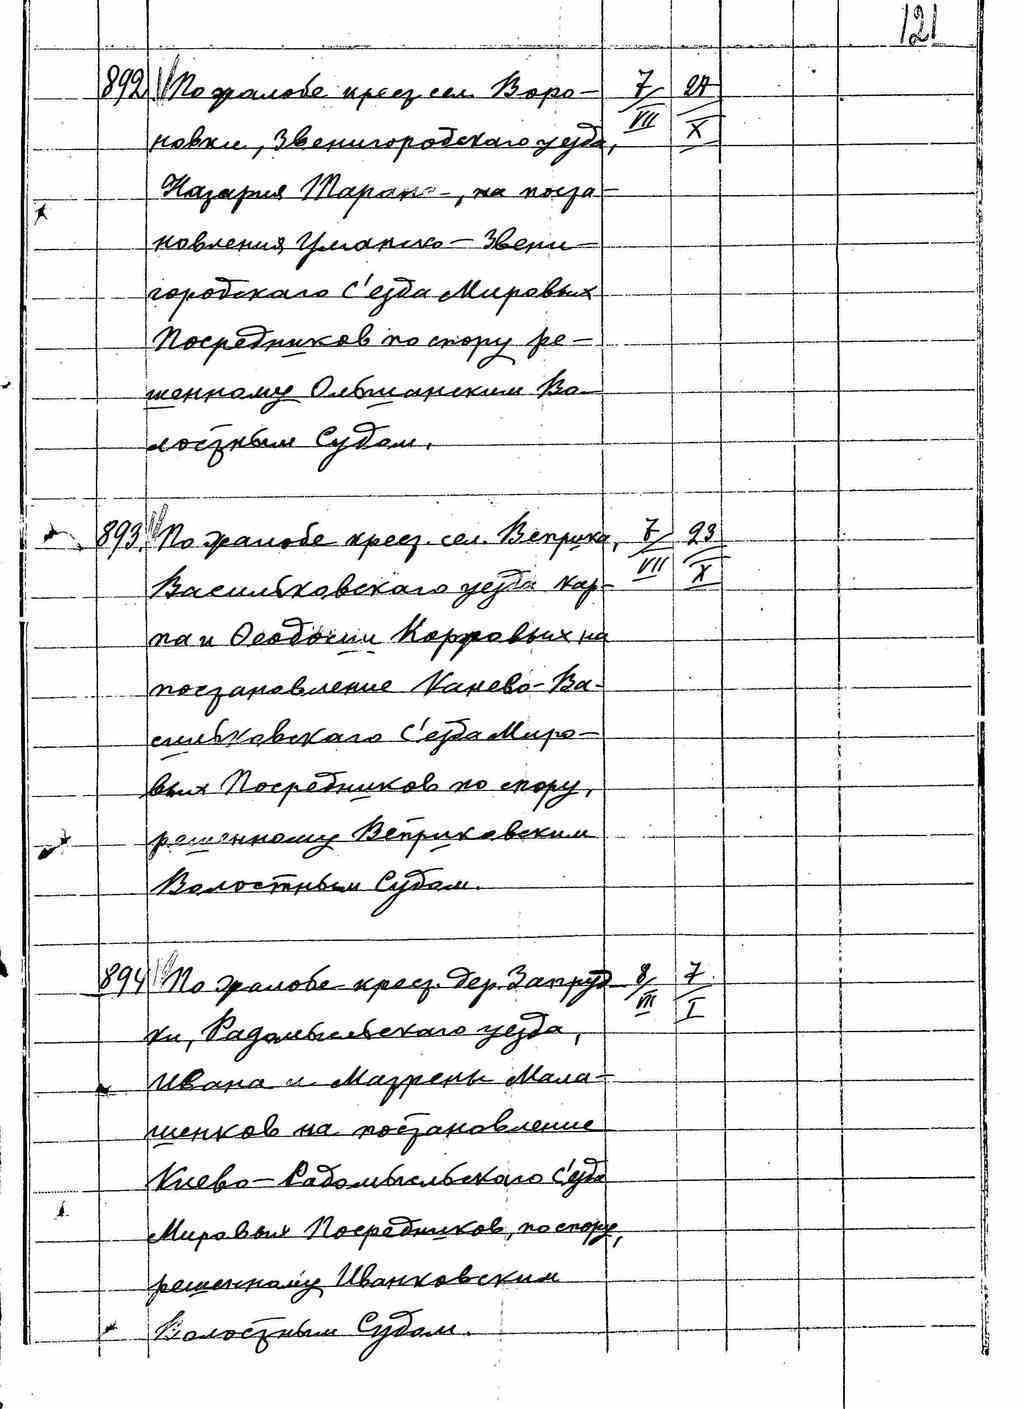 121
892 По жалобе крест. сел. Воро- 7/VII 27/X
новки, Звенигородского уезда,
Назария Таран, на поста-
новления Уманско-Звени-
городскаго С'езда Мировых
Посредников по спору ре-
шенному Ольшанским Во-
лостным Судом.
893. По жалобе крест. сел. Веприка, 7/VII 23/X
Васильковскаго уезда Кар-
па и Феодосии на
постановление Канево-Ва-
сильковскаго С'езда Миро-
вых Посредников по спору,
решенному Веприковским
Волостным Судом.
894 По жалобе крест. дер. Запруд- 8/VII 7/I
ки, Радомысльскаго уезда,
Ивана и Матрены Мала-
шенков на постановление
Киево-Радомысльскаго С'езда
Мировых Посредников, по спору,
решенному Иванковским
Волостным Судом.